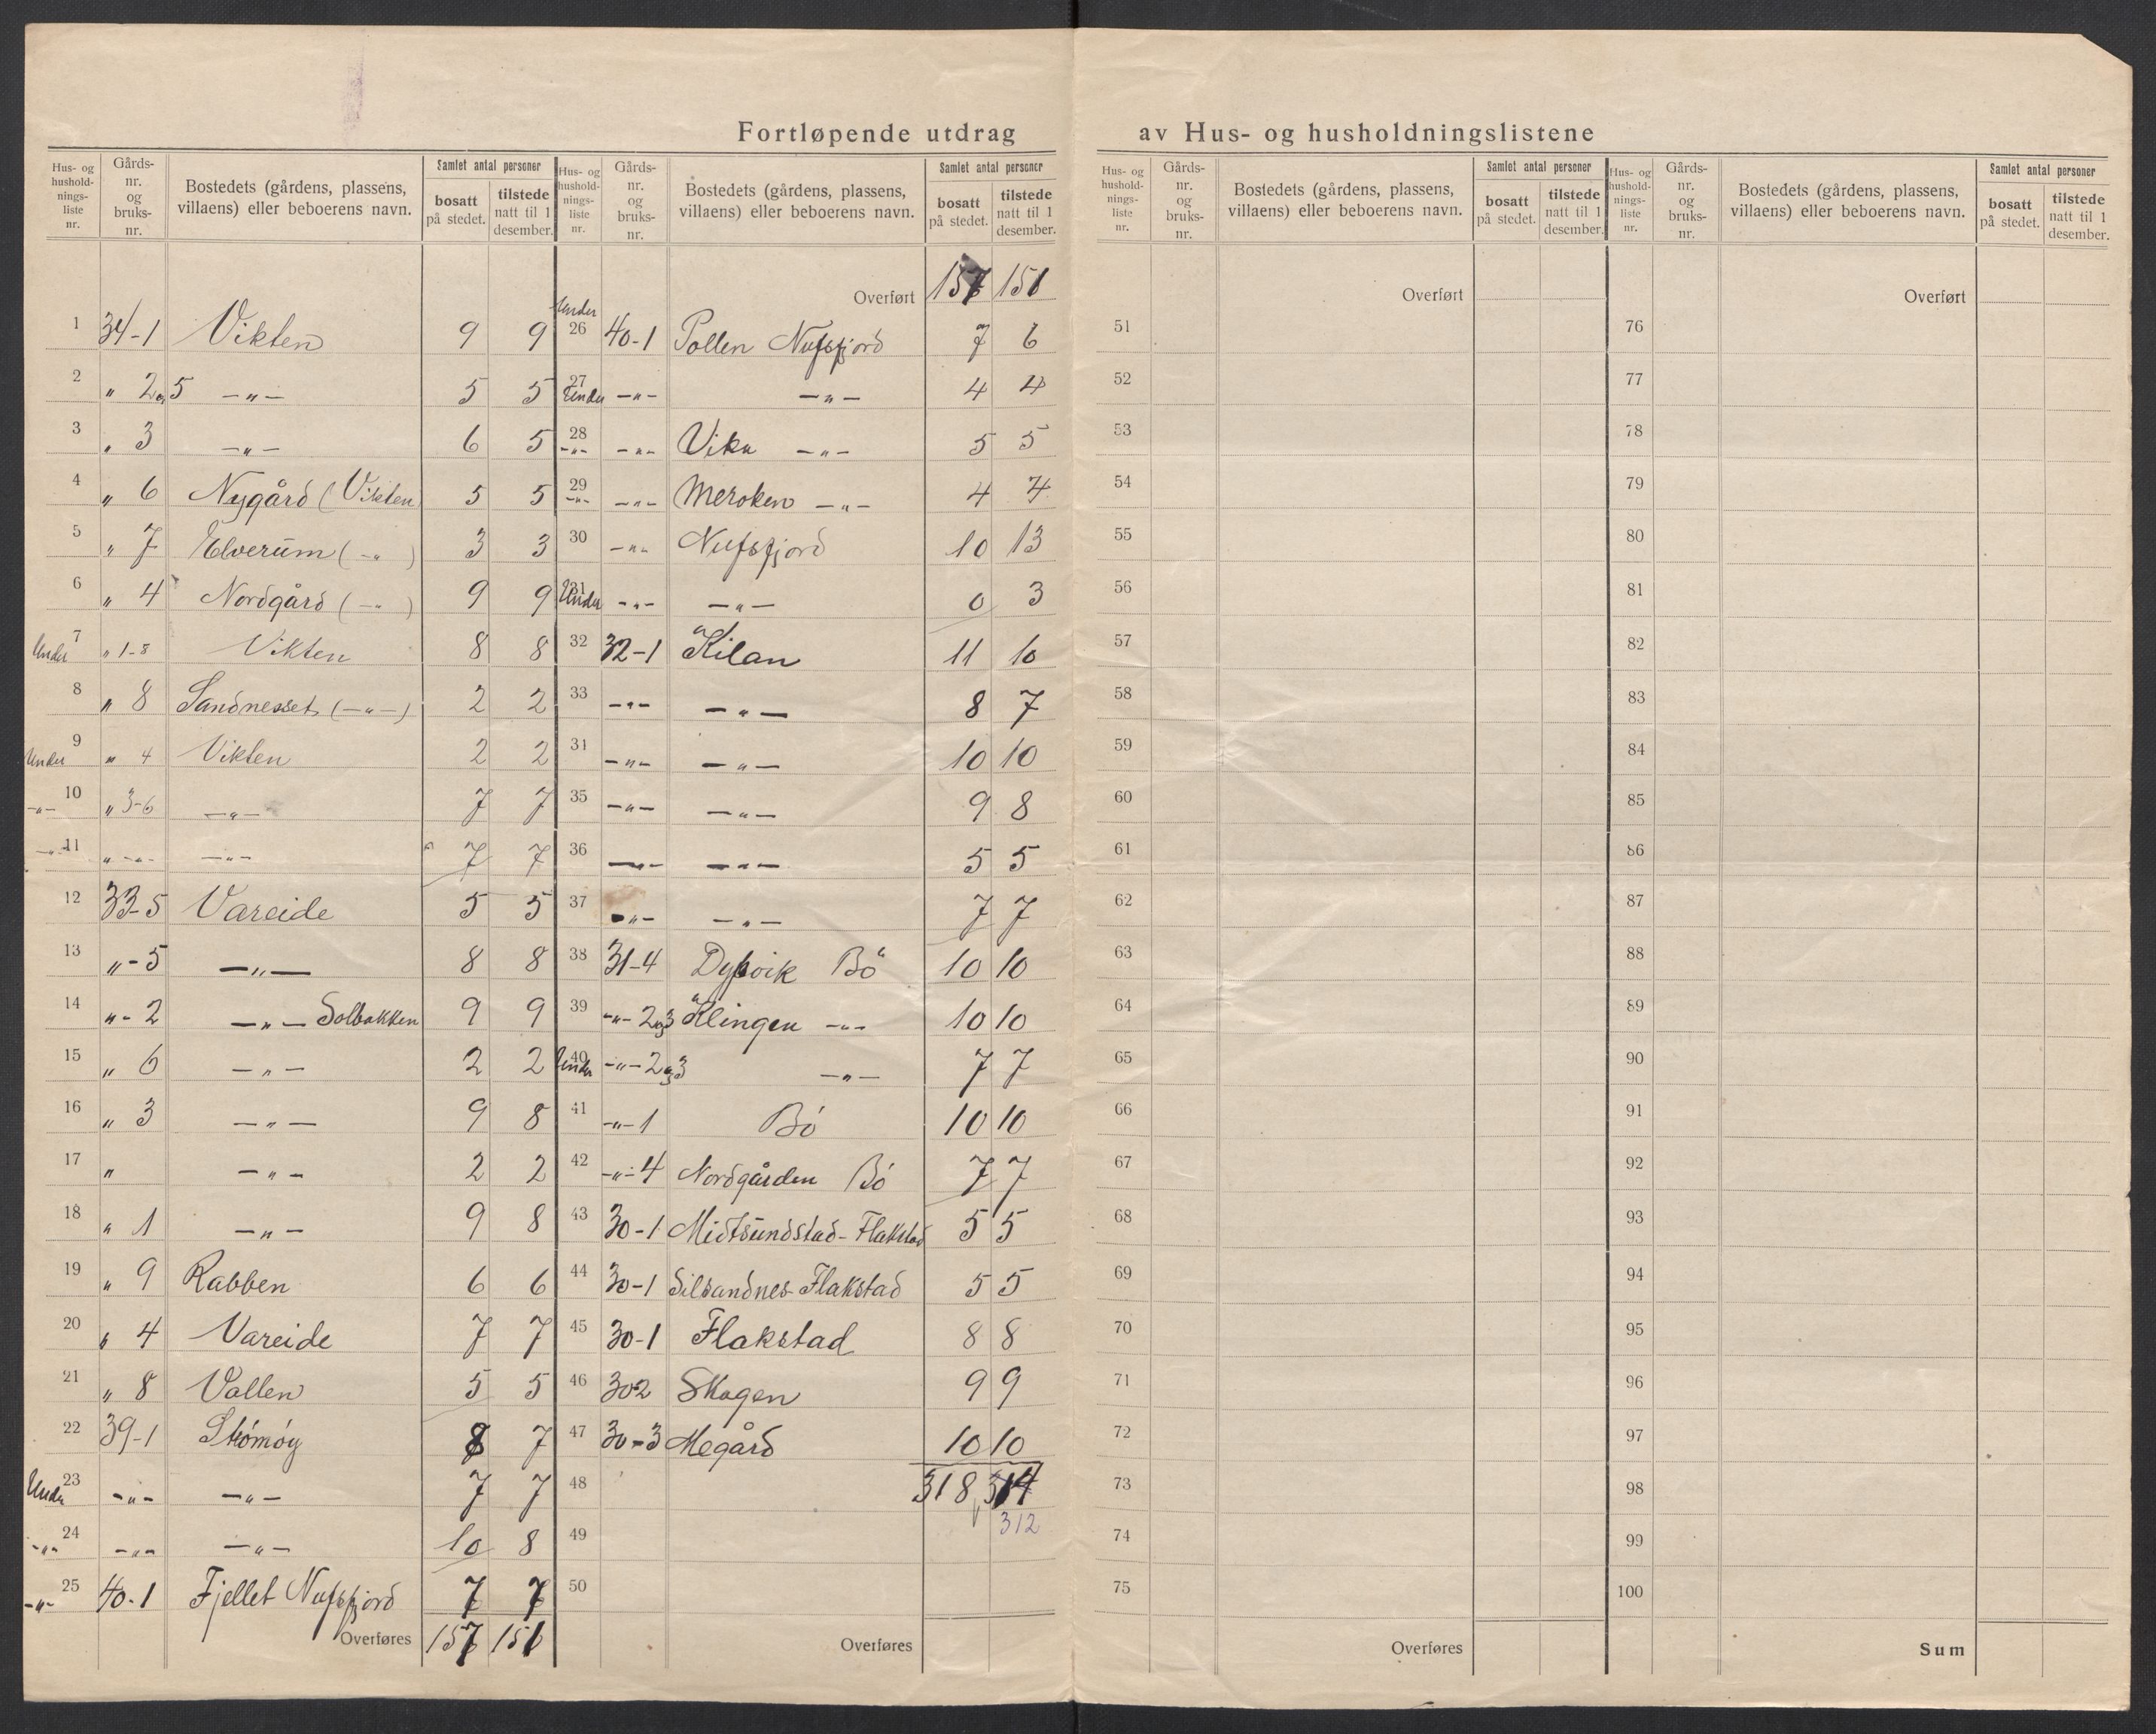 Fortløpende utdrag av Hus- og husholdningslistene
Hus- og hushold- nings- liste nr. | Gårds- nr. og bruks- nr. | Bostedets (gårdens, plassens, villaens) eller beboerens navn. | Samlet antal personer | bosatt på stedet. | tilstede natt til 1 desember.
1 34-1 Vikten 9 9
2 „ 2 og 5 —„— 5 5
3 „ 3 —„— 6 5
4 „ 6 Nygård (Vikten 5 5
5 „ 7 Elverum (—„) 3 3
6 „ 4 Nordgård (—„) 9 9
Under 7 „ 1-8 Vikten 8 8
8 „ 8 Sandnesset (—„—) 2 2
Under 9 „ 4 Vikten 2 2
—„— 10 „ 3-6 —„— 7 7
—„— 11 „ —„— —„— 7 7
12 33-5 Vareide 5 5
13 „-5 —„— 8 8
14 „-2 —„— Solbakken 9 9
15 „ 6 —„— 2 2
16 „ 3 —„— 9 8
17 „ —„— 2 2
18 „ 1 —„— 9 8
19 „ 9 Rabben 6 6
20 „ 4 Vareide 7 7
21 „ 8 Vollen 5 5
22 39-1 Strömöy 8 7
Under 23 —„— —„— 7 7
—„— 24 —„— —„— 10 8
—„— 25 40-1 Fjellet Nufsfjord 7 7
Overføres 157 151
Hus- og hushold- nings- liste nr. | Gårds- nr. og bruks- nr. | Bostedets (gårdens, plassens, villaens) eller beboerens navn. | Samlet antal personer | bosatt på stedet. | tilstede natt til 1 desember.
Overført 157 151
Under 26 40-1 Pollen Nufsfjord 7 6
27 Under —„— —„— 4 4
28 —„— —„— Vika —„— 5 5
29 —„— —„— Meroken —„— 4 4
30 —„— Nufsfjord 10 13
31 Under —„— —„— 0 3
32 32-1 Kilan 11 10
33 —„— —„— 8 7
34 —„— —„— 10 10
35 —„— —„— 9 8
36 —„— —„— 5 5
37 —„— —„— 7 7
38 31-4 Dypvik Bö 10 10
39 —„— 2 og 3 Klingen —„— 10 10
40 Under —„— 2 og 3 —„— 7 7
41 —„— 1 Bö 10 10
42 —„— 4 Nordgården Bö 7 7
43 30-1 Midtsundstad - Flakstad 5 5
44 30-1 Silsandnes - Flakstad 5 5
45 30-1 Flakstad 8 8
46 30 2 Skogen 9 9
47 30-3 Megård 10 10
48 318 314
312
49
50
Overføres
Hus- og hushold- nings- liste nr. | Gårds- nr. og bruks- nr. | Bostedets (gårdens, plassens, villaens) eller beboerens navn. | Samlet antal personer | bosatt på stedet. | tilstede natt til 1 desember.
Overført
51
52
53
54
55
56
57
58
59
60
61
62
63
64
65
66
67
68
69
70
71
72
73
74
75
Overføres
Hus- og hushold- nings- liste nr. | Gårds- nr. og bruks- nr. | Bostedets (gårdens, plassens, villaens) eller beboerens navn. | Samlet antal personer | bosatt på stedet. | tilstede natt til 1 desember.
Overført
76
77
78
79
80
81
82
83
84
85
86
87
88
89
90
91
92
93
94
95
96
97
98
99
100
Sum